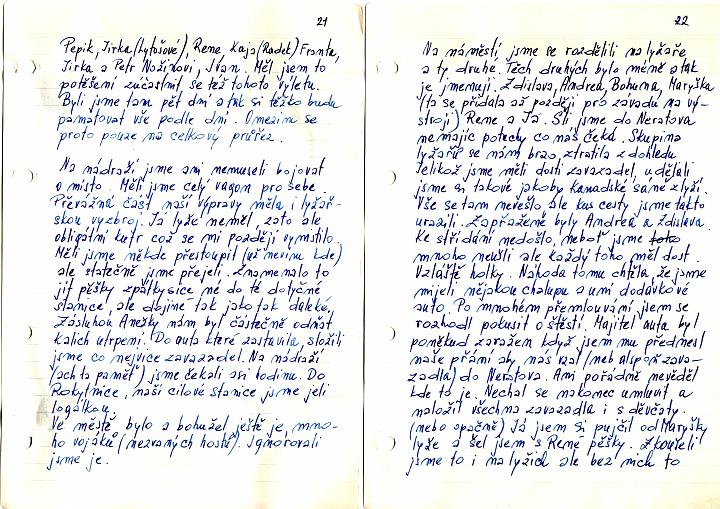 21
Pepik, Jirka (Lytošové), Rene, Kaja (Radek) Franta,
Jirka a Petr Nožínovi, Ivan. Měl jsem to
potěšení zúčastnit se též tohoto výletu.
Byli jsme tam pět dní a tak si těžko budu
pamatovat vše podle dní. Omezím se
proto pouze na celkový průřez.
Na nádraží jsme ani nemuseli bojovat
o místo. Měli jsme celý vagon pro sebe.
Převážná část naší výpravy měla i lyžař-
skou výzbroj. Já lyže neměl, zato ale
obligátní kufr což se mi později vymstilo.
Měli jsme někde přestoupit (už nevím kde)
ale statečně jsme přejeli. Znamenalo to
jít pěšky zpátky sice né do té dotyčné
stanice, ale do jiné tak jako tak daleké.
Zásluhou Anežky nám byl částečně odňat
kalich utrpení. Do auta které zastavila, složili
jsme co nejvíce zavazadel. Na nádraží
(ach ta paměť) jsme čekali asi hodinu. Do
Rokytnice, naší cílové stanice jsme jeli
logálkou.
Ve městě bylo a bohužel ještě je, mno-
ho vojáků (nezvaných hostů). Ignorovali
jsme je.
22
Na náměstí jsme se rozdělili na lyžaře
a ty druhé. Těch druhých bylo méně a tak
je jmenuji. Zdislava, Andrea, Bohuna, Maryška
(ta se přidala až později pro závadu na vý-
stroji) Rene a Já. Šli jsme do Neratova
nemajíc potechy co nás čeká. Skupina
lyžařů se nám brzo ztratila z dohledu.
Jelikož jsme měli dosti zavazadel, udělali
jsme si takové jakoby Kanadské sáně z lyží.
Vše se tam nevešlo, ale kus cesty jsme takto
urazili. Zapřažené byly Andrea a Zdislava.
Ke střídání nedošlo, neboť jsme toho
mnoho neušli ale každý toho měl dost.
Vzláště holky. Náhoda tomu chtěla, že jsme
míjeli nějakou chalupu a u ní dodávkové
auto. Po mnohém přemlouvání jsem se
rozhodl pokusit o štěstí. Majitel auta byl
poněkud zaražem když jsem mu přednesl
naše přání aby nás vzal (neb alspoň zava-
zadla) do Neratova. Ani pořádně nevěděl
kde to je. Nechal se nakonec umluvit a
naložil všechna zavazadla i s děvčaty.
(nebo opačně) Já jsem si pujčil od Maryšky
lyže a šel jsem s René pěšky. Zkoušeli
jsme to i na lyžích ale bez nich to